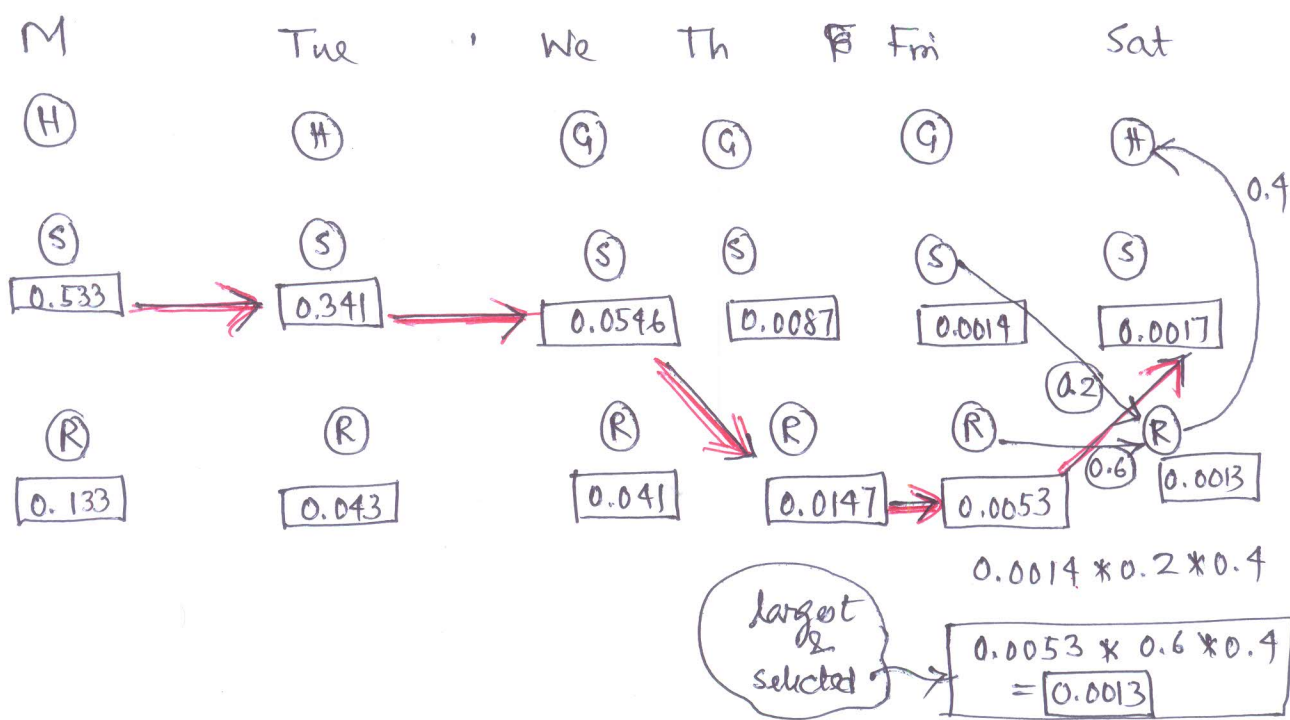 M Tue We Th Fri Sat
H H G G G H
0.4
S S S S S S
0.533 0.341 0.0546 0.0087 0.0014 0.0017
0.2
R R R R R R
0.6
0.133 0.043 0.041 0.0147 0.0053 0.0013
0.0014 * 0.2 * 0.4
largest
&
selected
0.0053 * 0.6 * 0.4
= 0.0013